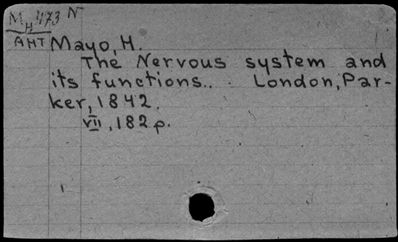 M H 473 N
AHT Mayo, H.
The Nervous system and
its functions.. London, Par-
ker, 1842.
VII, 182 p.